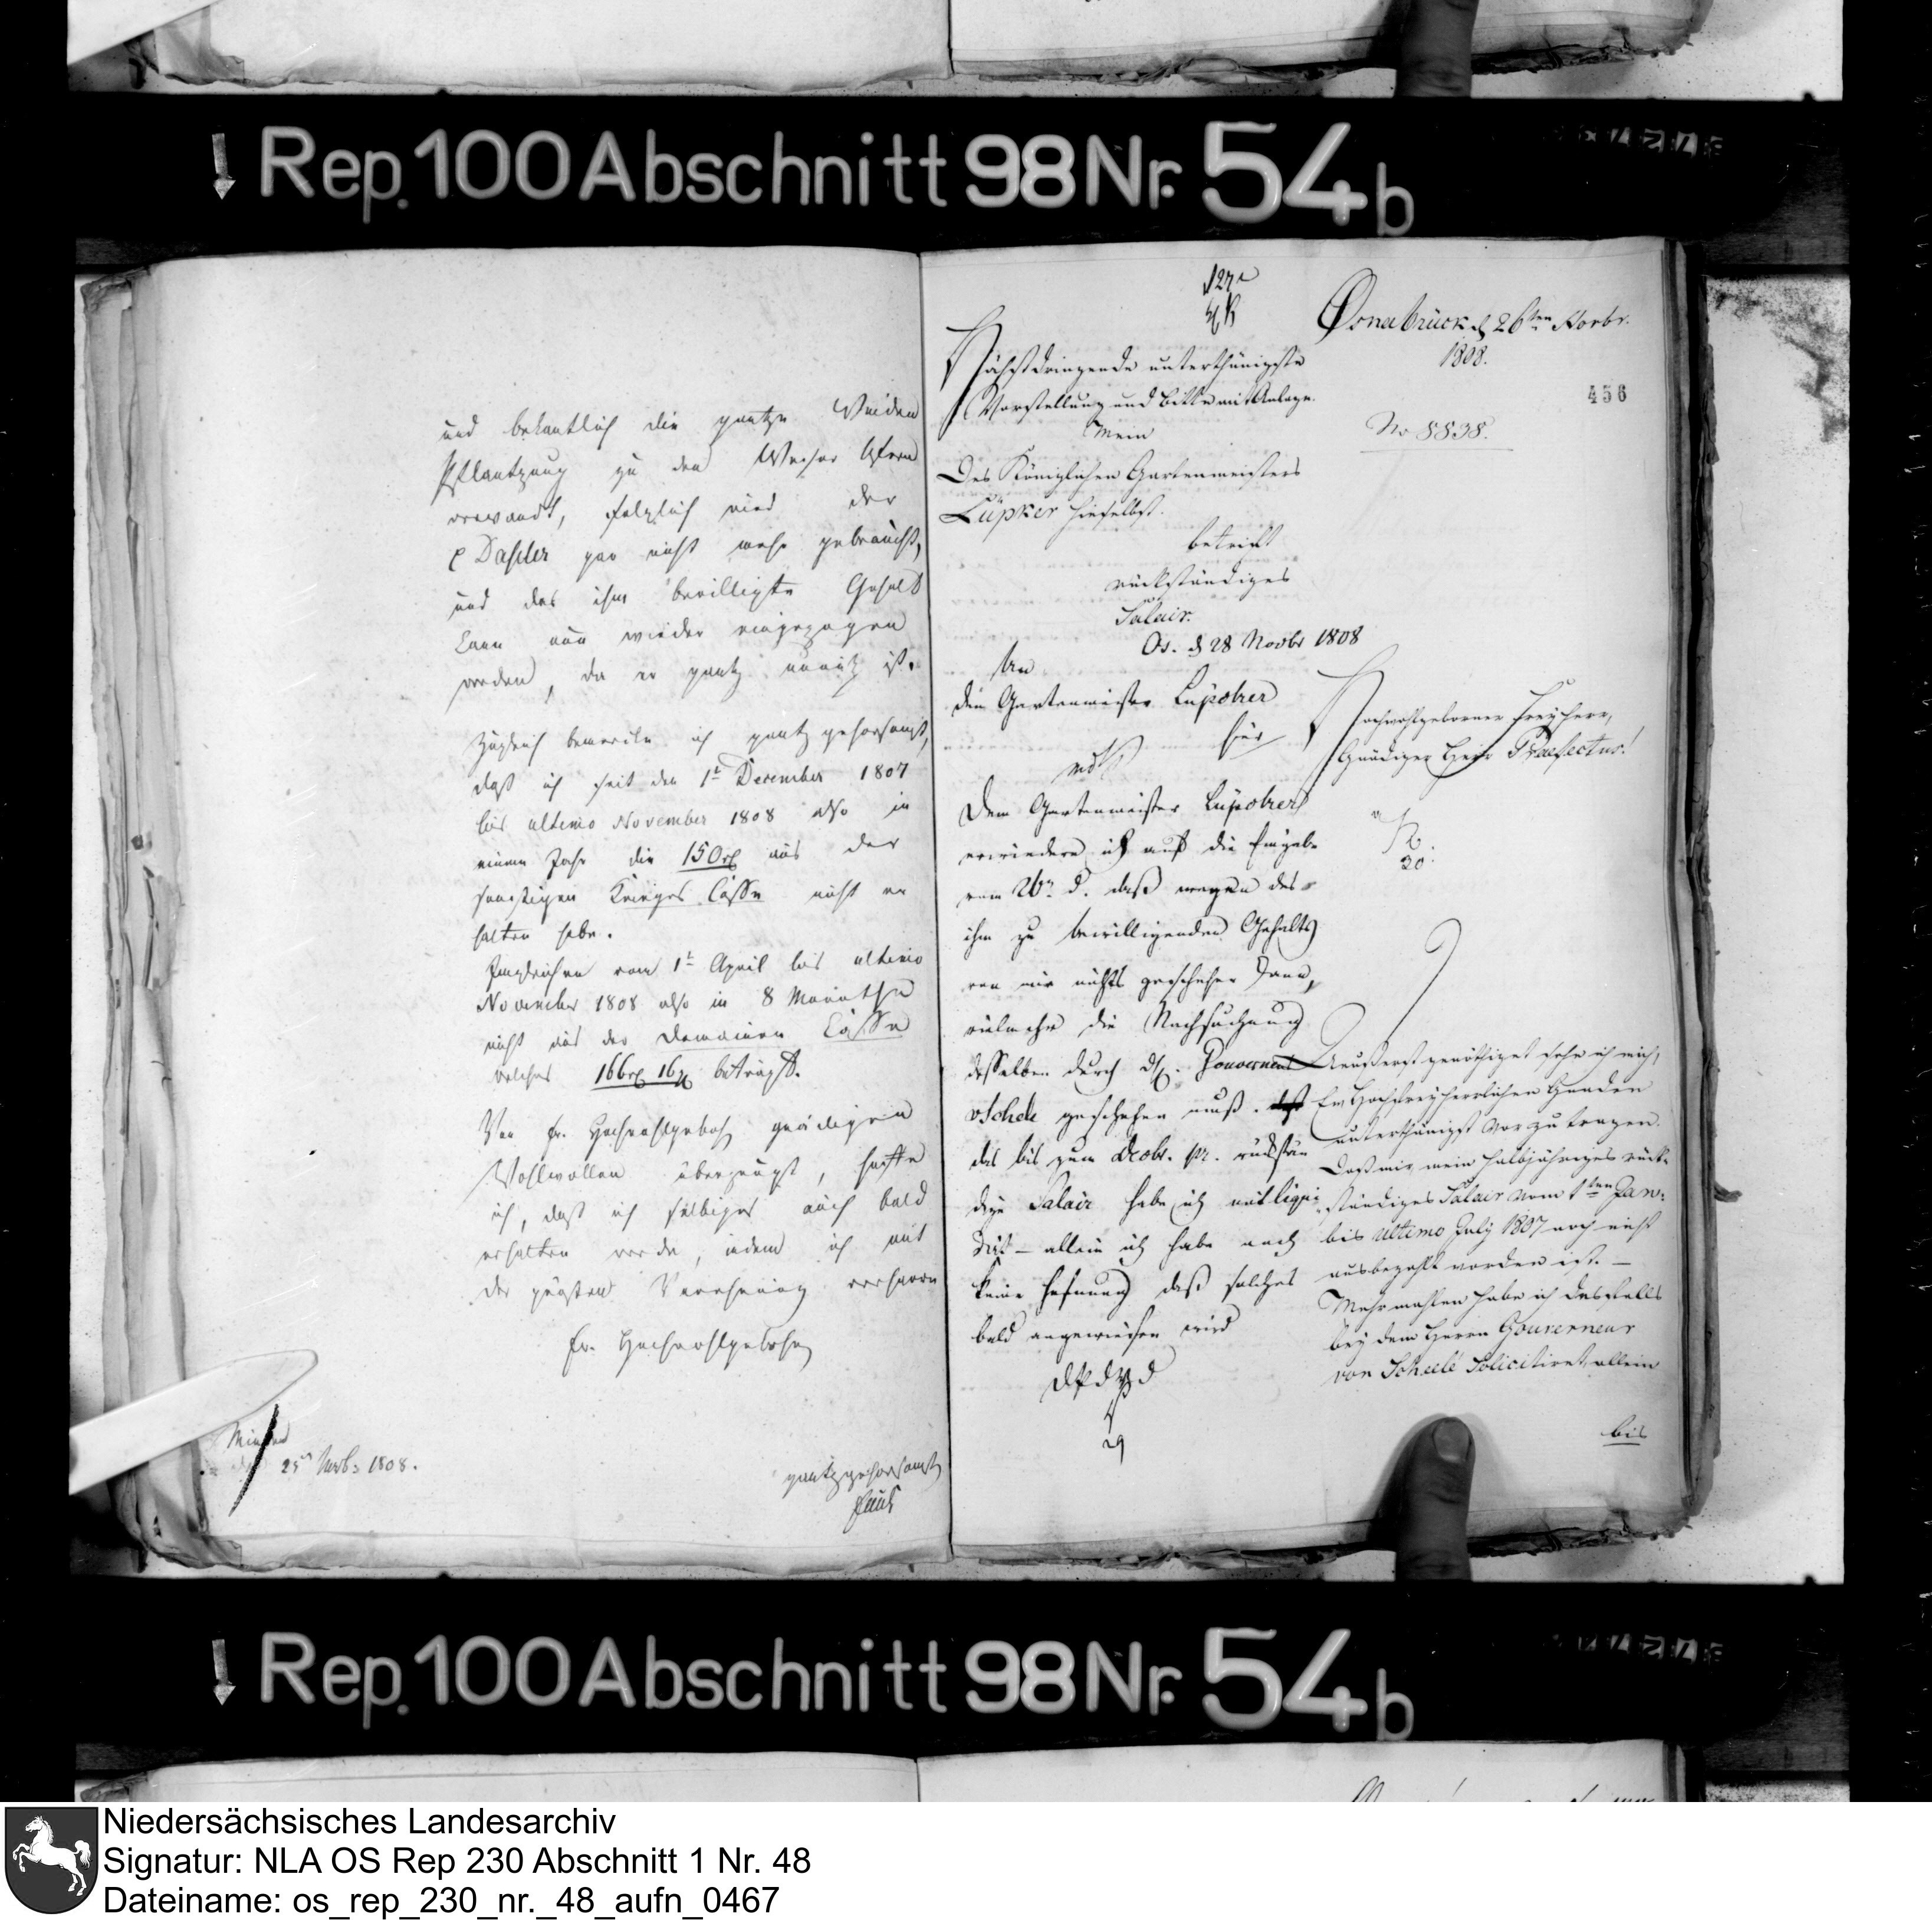 Rep. 100 Abschnitt 98 Nr. 54 b
und bekantlich die gantze Weiden
Pflantzung zu den Weeser Ufern
verwandt, folglich wird der
p Daßler gar nicht mehr gebraucht,
und das ihm bewilligte Gehalt
kann nun wieder eingezogen
werden, da er gantz unnütz ist.
Zugleich bemercke ich gantz gehorsamst,
daß ich seit den 1t December 1807
bis ultimo November 1808 also in
einem Jahr die 150 rt aus der
sonstigen Krieges Casse nicht er
halten habe.
Imgleichen vom 1t April bis ultimo
November 1808 also in 8 Monathe
nicht aus der Domainen Casse
welches 166 rt 16 beträgt.
Von Ew. Hochwohlgeboh gnädigen
Wohlwollen überzeugt, hoffe
ich, daß ich selbiges auch bald
erhalten werde, indem ich mit
der grösten Verehrung verharre
Ew. Hochwohlgebohr
Minden
25 Novb. 1808.
gantz gehorsamster
Osnabrück d 26ten Novbr.
1808.
456
No 8838.
Höchstdringende unterthänigste
Vorstellung und Bitte mit Anlage.
Mein
Des Königlichen Gartenmeisters
Lüpker hieselbst.
betrift
rückständiges
Salair.
Os. d 28 Novbr 1808
An
den Gartenmeister Lüpcker
hier
Dem Gartenmeister Lüpcker
erwiedere ich auf die Eingabe
vom 26n d. daß wegen des
ihm zu bewilligenden Gehalts
von mir nichts geschehen kann,
vielmehr die Nachsuchung
desselben durch Gouverneur
v Schele geschehen muß.
das bis zum Decbr. pr. rückstän
dige Salair habe ich mit liqui
dirt – allein ich habe noch
keine Hofnung daß solches
bald angewiesen wird
Hochwohlgeborner Freyherr,
Gnädiger Herr Praefectus!
30.
Aeußerst genöthiget sehe ich mich,
Ew Hochfreyherrlichen Gnaden
unterthänigst vor zu tragen.
Daß mir mein halbjähriges rück-
ständiges Salair vom 1ten Jan:
bis ultimo July 1807 noch nicht
ausbezahlt worden ist. –
Mehrmahlen habe ich desfalls
bey dem Herrn Gouverneur
von Scheele Solicitiret, allein
bis
Rep. 100 Abschnitt 98 Nr. 54 b
Niedersächsisches Landesarchiv
Signatur: NLA OS Rep 230 Abschnitt 1 Nr. 48
Dateiname: os_rep_230_nr._48_aufn_0467